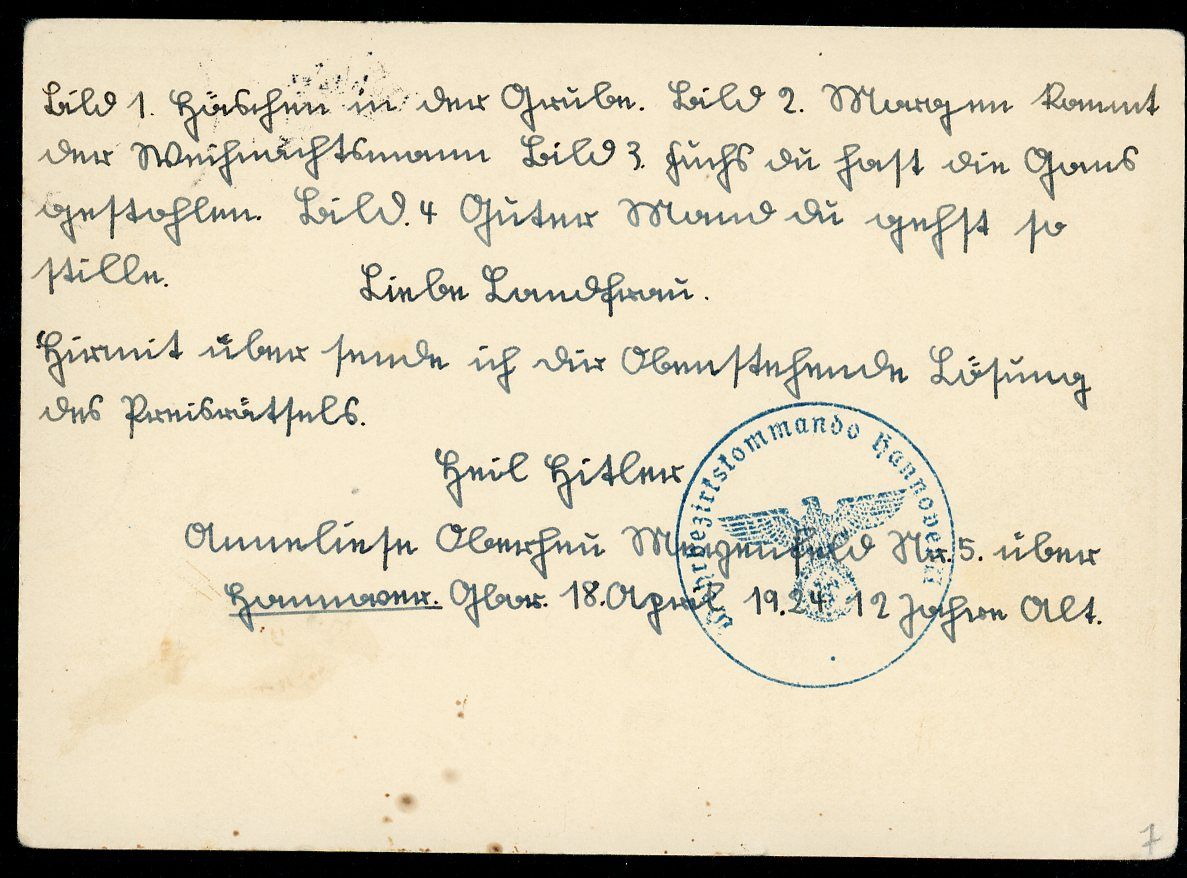 Bild 1. Häschen in der Grube. Bild 2. Morgen kommt
der Weihnachtsmann Bild 3. Fuchs du hast die Gans
gestohlen. Bild. 4 Guter Mond du gehst so
stille. Liebe Landfrau.
Hirmit über sende ich dir Obenstehende Lösung
des Preisrätsels.
Heil Hitler
Anneliese Oberheu Nr. 5. über
Hannover. Gbor. 18. April 19.24 12 Jahre Alt.
Wehrbezirkskommando Hannover
7